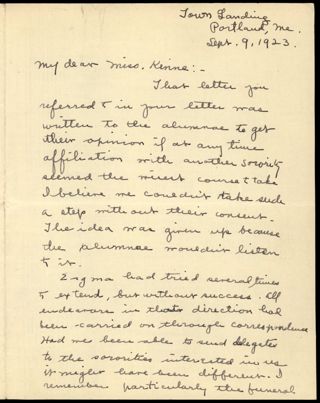 Town Landing
Portland, Me.
Sept. 9, 1923.
My dear Miss. Kinne:-
That letter you
referred to in your letter was
written to the alumnae to get
their opinion if at any time
affiliation with another Sorority
seemed the wisest course to take
I believe we couldn't take such
a step without their consent.
The idea was given up because
the alumnae wouldn't listen
to it.
Sigma had tried several times
to extend, but without success. All
endeavors in that direction had
been carried on through correspondence
Had we been able to send delegates
to the sororities interested in us
it might have been different. I
remember particularly the funeral